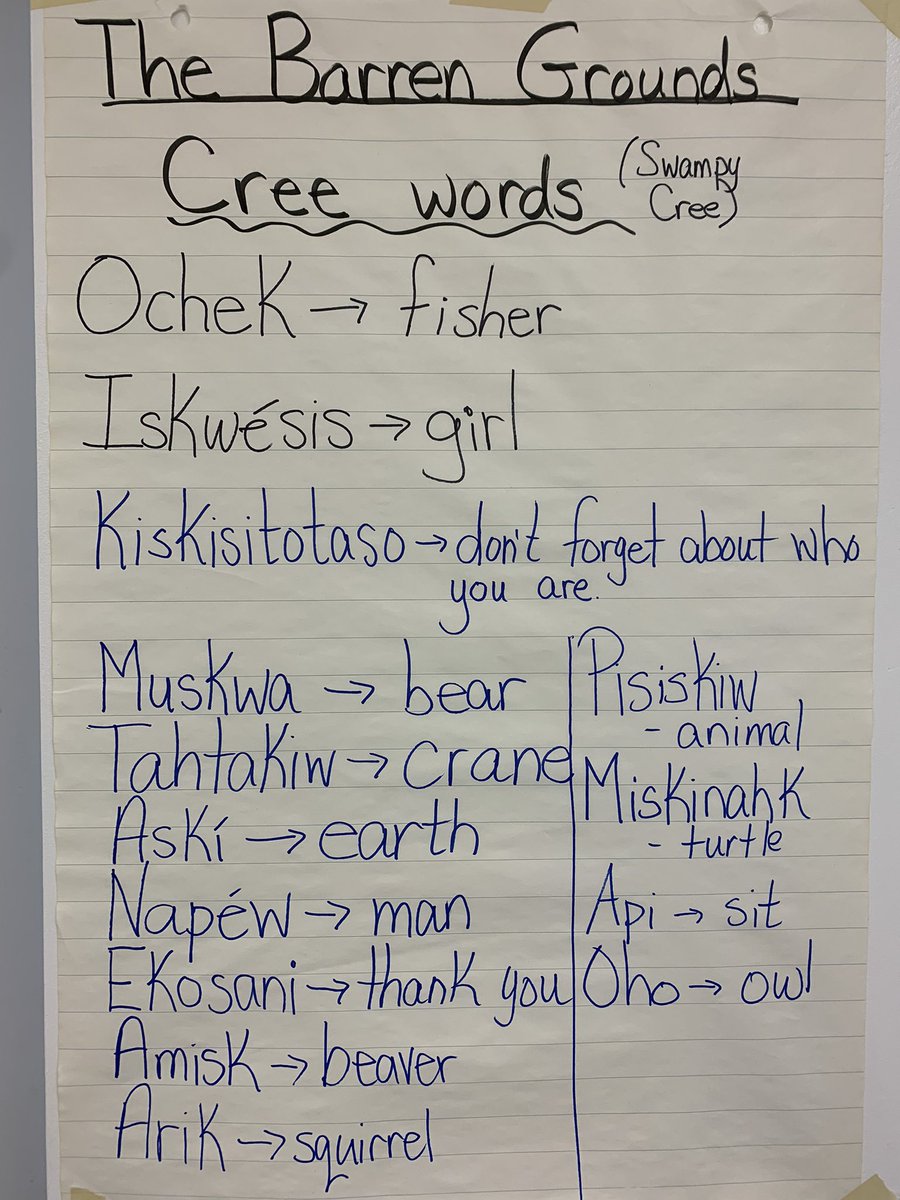 The Barren Grounds
Cree words (Swampy
Cree)
Ochek → fisher
Iskwésis → girl
Kiskisitotaso → don't forget about who
you are.
Muskwa → bear
Tahtakiw → crane
Askí → earth
Napéw → man
Ekosani → thank you
Amisk → beaver
Arik → squirrel
Pisiskiw
- animal
Miskinahk
- turtle
Api → sit
Oho → owl